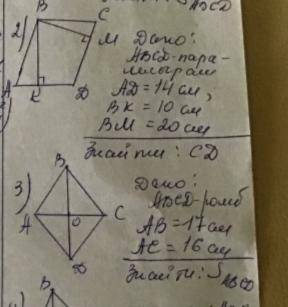 S ABCD
2)
B
C
M
A
K
D
Дано:
ABCD-пара-
лелограм
AD=14 см,
BK=10 см
BM=20 см
Знайти: CD
3)
B
A
O
C
D
Дано:
ABCD-ромб
AB=17 см
AC=16 см
Знайти: S ABCD
B